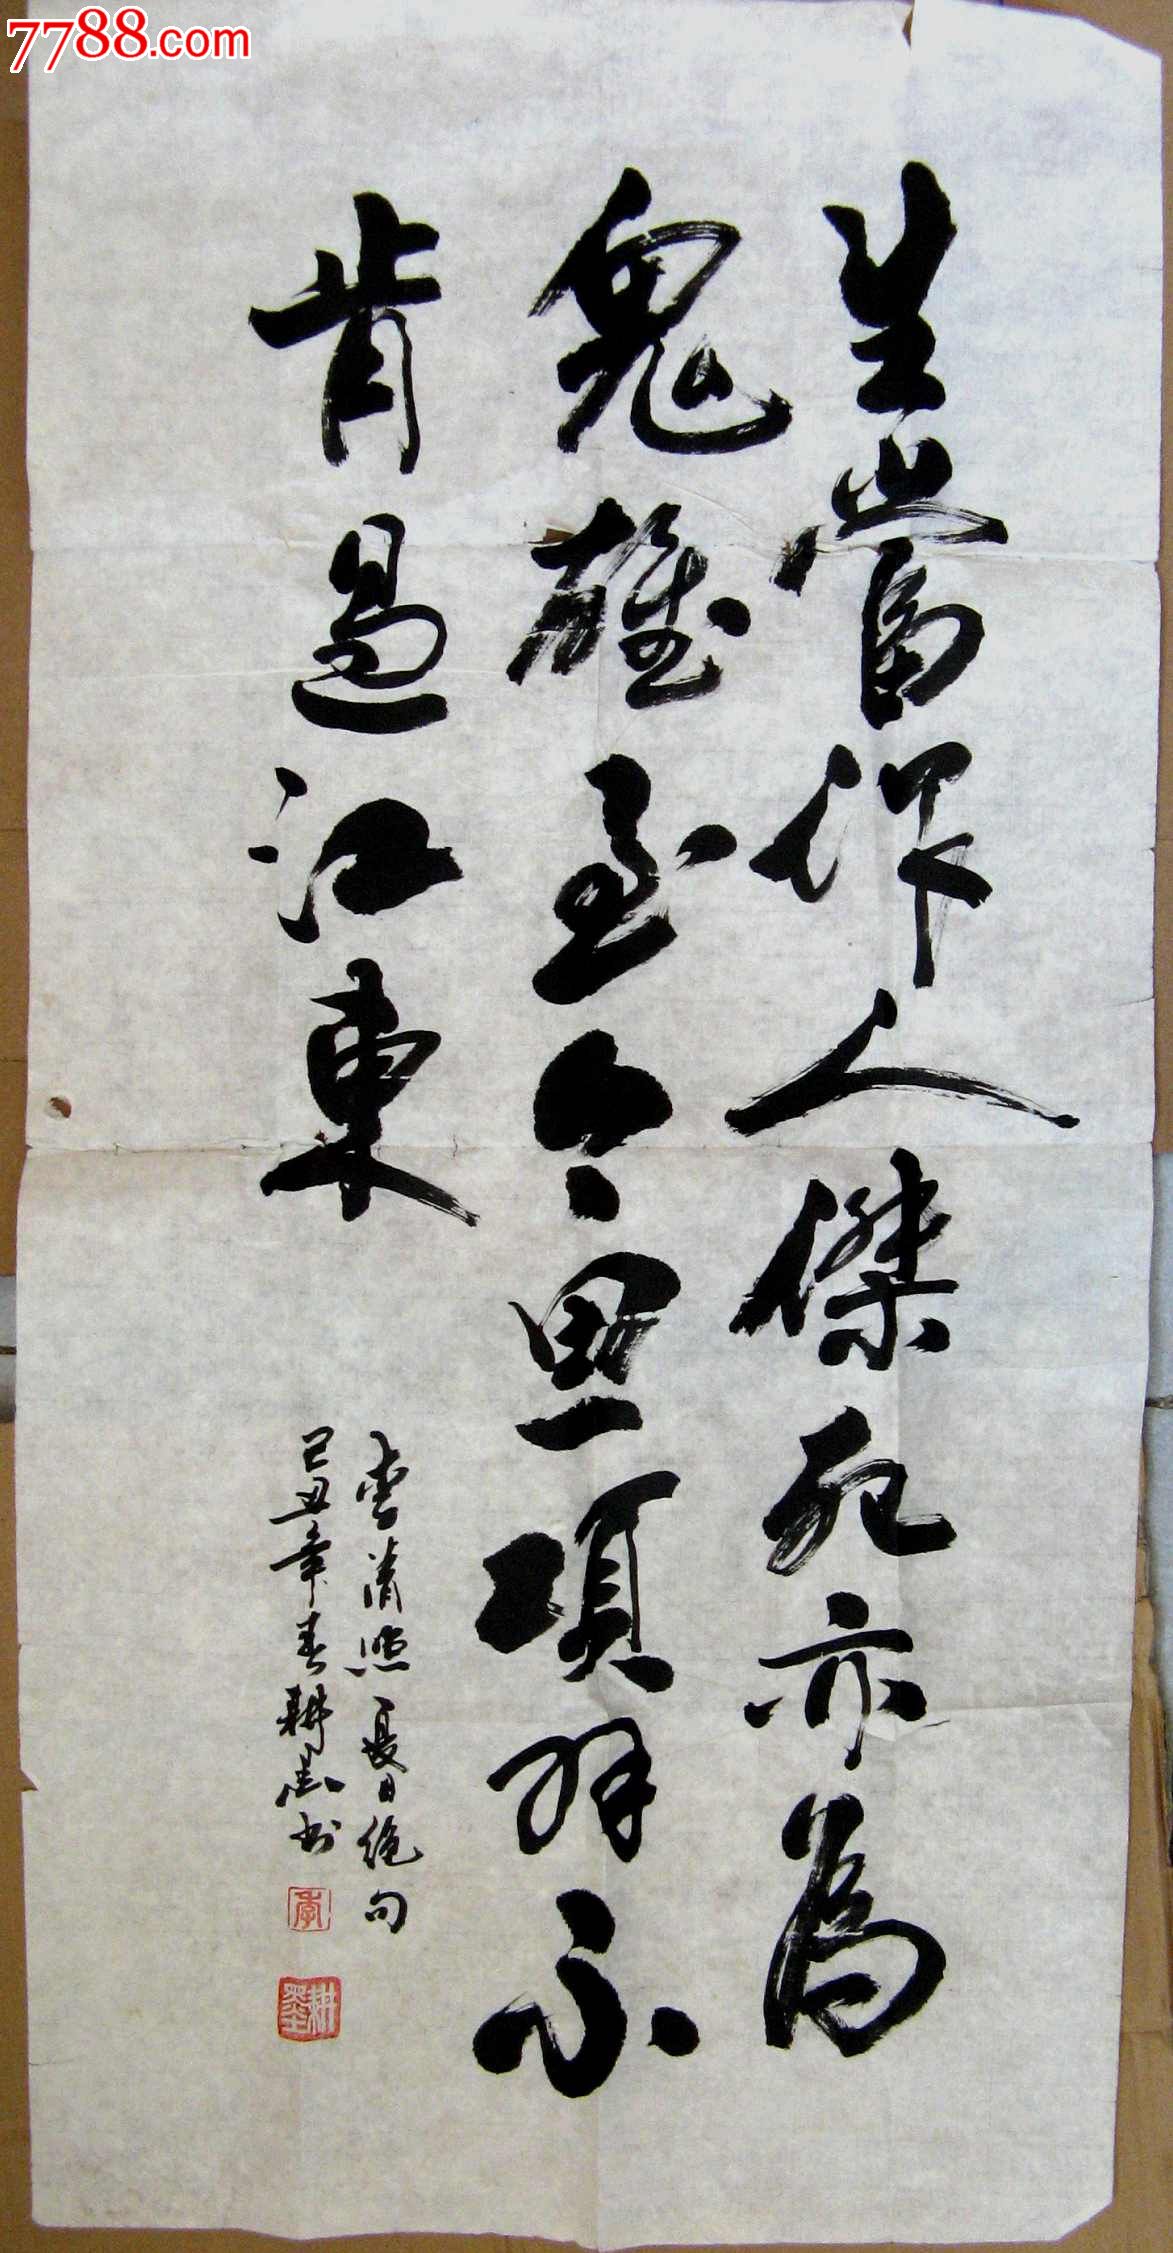 7788.com
生當作人傑死亦為
鬼雄至今思項羽不
肯過江東
李清照夏日絕句
己丑年春耕墨书
李
耕墨